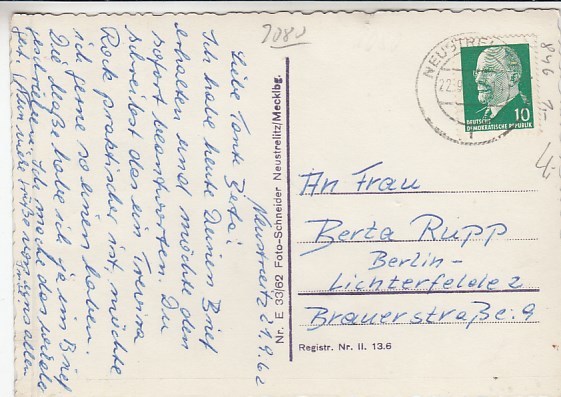 7080
Neustrelitz 21.9.62
Liebe Tante Berta!
Ich habe heute Deinen Brief
erhalten und möchte den
sofort beantworten. Du
schreibst das ein Trevira
Rock praktischer ist, möchte
ich gerne so einen haben.
Die Maße habe ich ja im Brief
geschrieben. Ich mache das
gen. Nun viele Grüße von uns allen
Nr. E 33/62 Foto-Schneider Neustrelitz/Mecklbg.
NEUSTREL
22.9
DEUTSCHE
DEMOKRATISCHE REPUBLIK
10
846
An Frau
Berta Rupp
Berlin-
Lichterfelde 2
Brauerstraße 9
Registr. Nr. II. 13.6